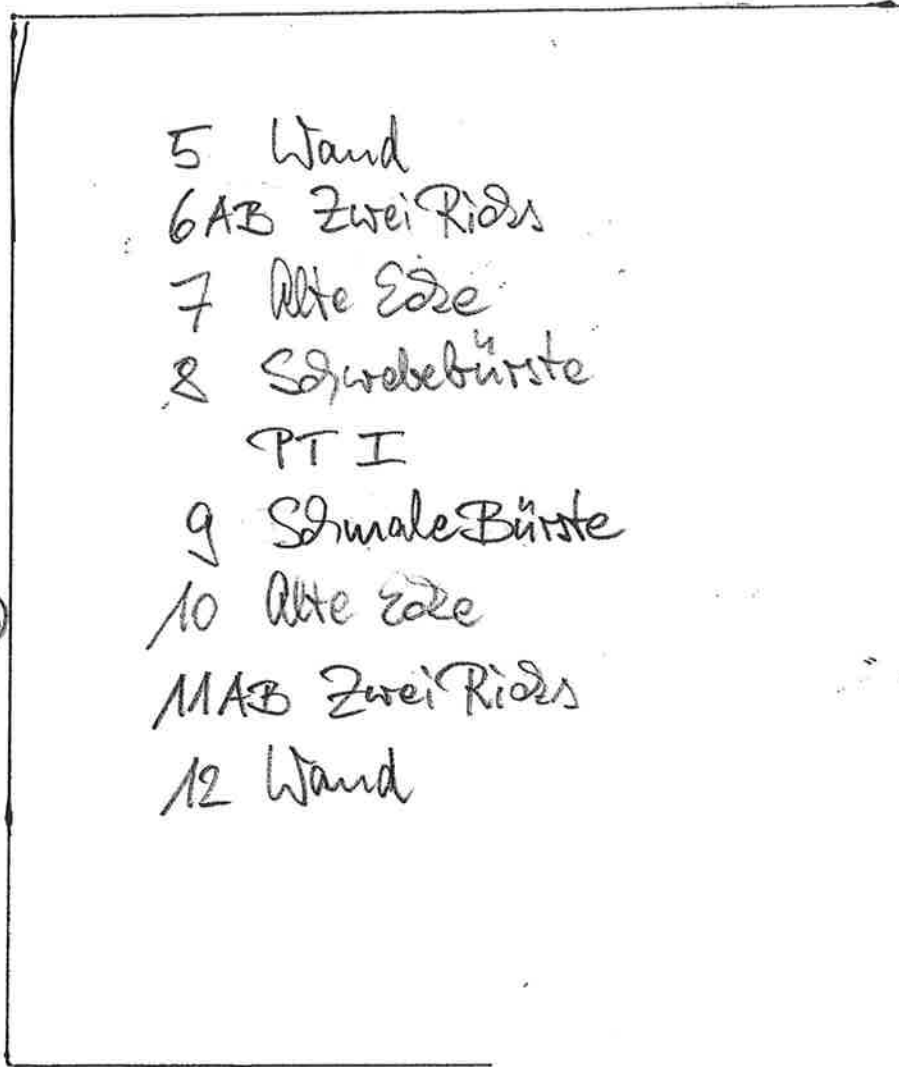 5 Wand
6AB Zwei Ricks
7 Alte Ecke
8 Schwebebürste
PT I
9 Schmale Bürste
10 Alte Ecke
11AB Zwei Ricks
12 Wand